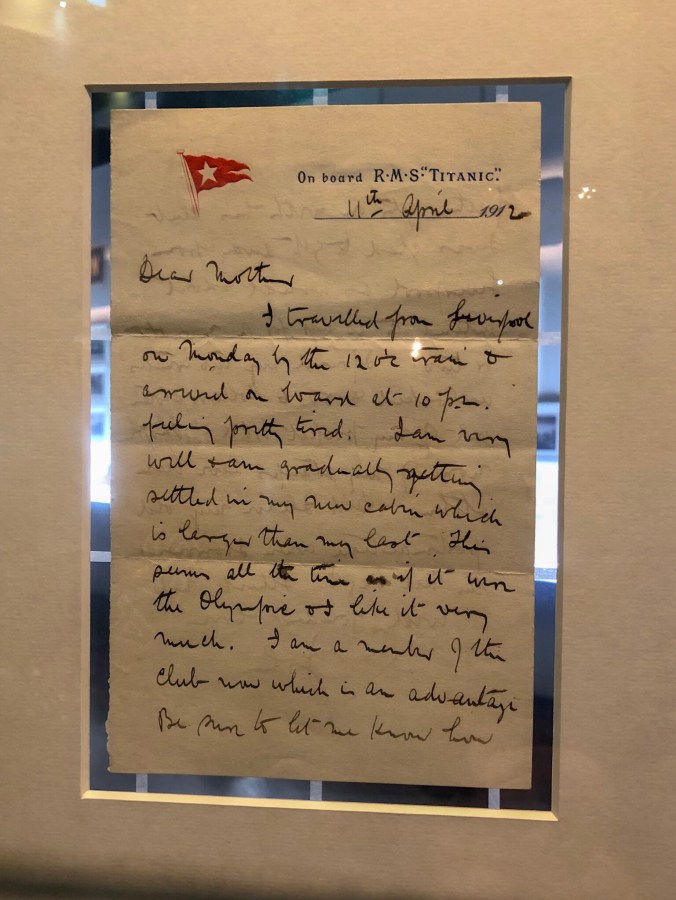 On board R·M·S·"TITANIC".
11th April 1912
Dear Mother
I travelled from Liverpool
on Monday by the 12 o'c train &
arrived on board at 10 p.m.
feeling pretty tired. I am very
well & am gradually getting
settled in my new cabin which
is larger than my last. This
seems all the time as if it were
the Olympic & I like it very
much. I am a member of the
club now which is an advantage
Be sure to let me know how